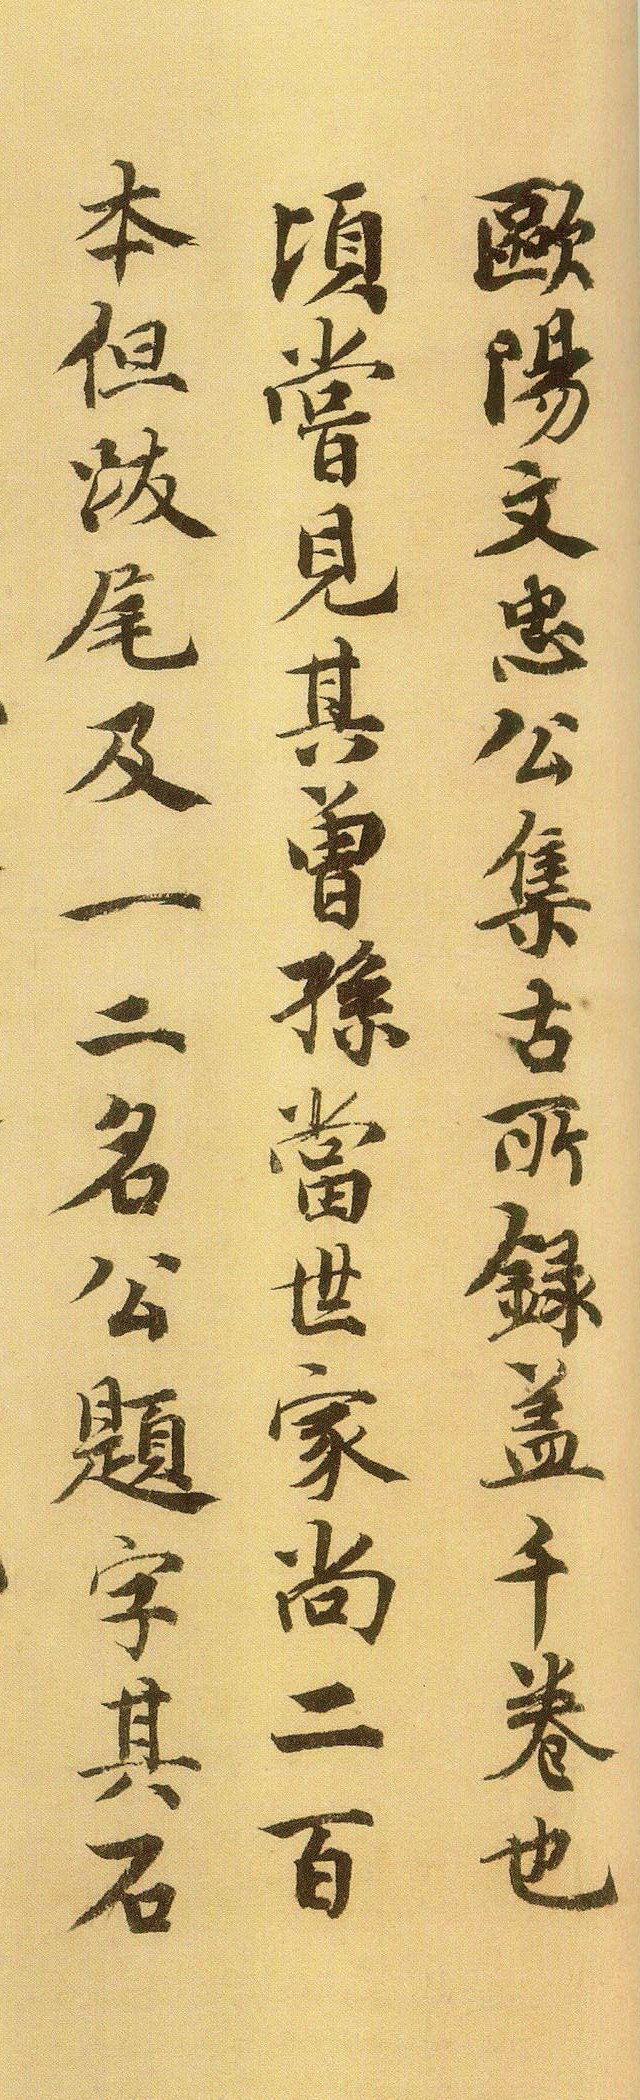 歐陽文忠公集古所録盖千卷也
頃嘗見其曾孫當世家尚二百
本但跋尾及一二名公題字其石